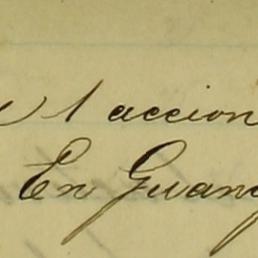 1 accion
En Guang